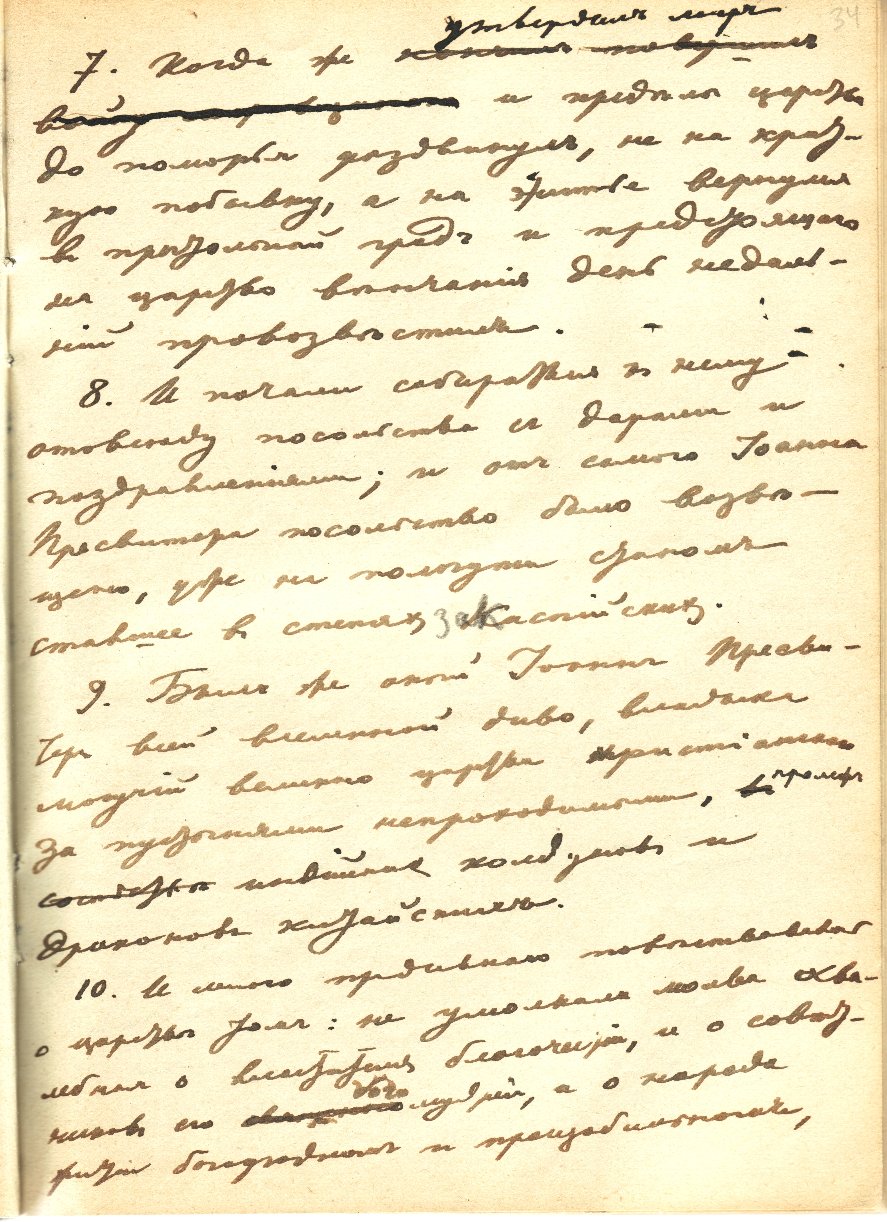 34
утвердилъ миръ
7. Когда же кончилъ
войну и предѣлы царства
до поморья раздвинулъ, не на крат-
кую побывку, а на житье вернулся
въ престольный градъ и предстоящаго
на царство вѣнчанія день недаль-
ній провозвѣстилъ.
8. И почали собираться къ нему
отовсюду посольства съ дарами и
поздравленіями; и отъ самого Іоанна
Пресвитера посольство было возвѣ-
щено, уже на полпути станомъ
ставшее въ степяхъ закаспійскихъ.
9. Былъ же оный Іоаннъ Пресви-
теръ всей вселенной диво, владыка
могучій великаго царства христіанскаго
за пустынями непроходимыми, промежъ
сосѣдства индійскихъ колдуновъ и
драконовъ китайскихъ.
10. И много предивнаго повѣствовалось
о царствѣ томъ: не умолкала молва хва-
лебная о властителя благочестіи, и о совѣт-
никовъ его мудріи, а о народа
житіи богоугодномъ и преизобильномъ,